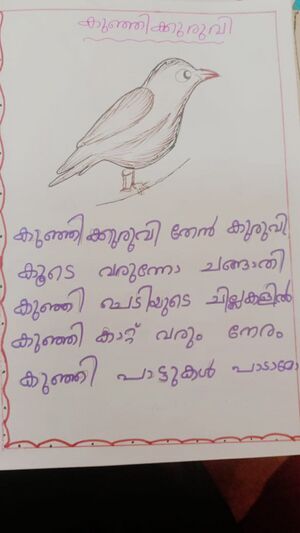 കുഞ്ഞിക്കുരുവി
കുഞ്ഞിക്കുരുവി തേൻ കുരുവി
കൂടെ വരുന്നോ ചങ്ങാതി
കുഞ്ഞി ചെടിയുടെ ചില്ലകളിൽ
കുഞ്ഞി കാറ്റ് വരും നേരം
കുഞ്ഞി പാട്ടുകൾ പാടാമോ